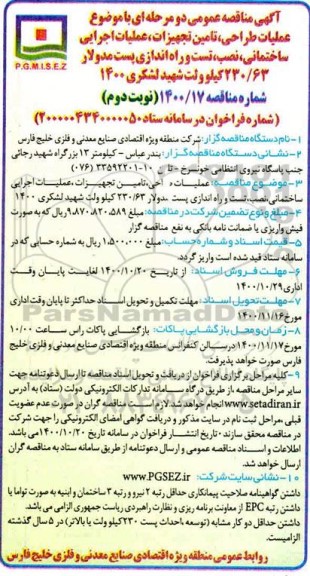 آگهی مناقصه عمومی دو مرحله ای با موضوع
عملیات طراحی، تامین تجهیزات، عملیات اجرایی
ساختمانی، نصب، تست و راه اندازی پست مدولار
۲۳۰/۶۳ کیلو ولت شهید لشکری ۱۴۰۰
P.G.M.I.S.E.Z
شماره مناقصه ۱۴۰۰/۱۷ (نوبت دوم)
(شماره فراخوان در سامانه ستاد ۲۰۰۰۰۰۴۳۴۰۰۰۰۰۵۰)
۱- نام دستگاه مناقصه گزار: شرکت منطقه ویژه اقتصادی صنایع معدنی و فلزی خلیج فارس
۲- نشانی دستگاه مناقصه گزار: بندر عباس - کیلومتر ۱۳ بزرگراه شهید رجائی
جنب پاسگاه نیروی انتظامی خونسرخ - تلفن ۱۰-۳۳۵۹۲۲۰۱ (۰۷۶)
۳- موضوع مناقصه: عملیات احی، تامین تجهیزات، عملیات اجرایی
ساختمانی، نصب، تست و راه اندازی پست مدولار ۲۳۰/۶۳ کیلو ولت شهید لشکری ۱۴۰۰
۴- مبلغ و نوع تضمین شرکت در مناقصه: مبلغ ۹،۸۷۰،۸۲۰،۵۸۹ ریال که به صورت
فیش واریزی یا ضمانت نامه بانکی به نفع مناقصه گزار
۵- قیمت اسناد و شماره حساب: مبلغ ۱،۵۰۰،۰۰۰ ریال به شماره حسابی که در
سامانه ستاد قید شده است واریز گردد.
۶- مهلت فروش اسناد: از تاریخ ۱۴۰۰/۱۰/۲۰ لغایت پایان وقت
اداری ۱۴۰۰/۱۰/۲۹
۷- مهلت تحویل اسناد: مهلت تکمیل و تحویل اسناد حداکثر تا پایان وقت اداری
مورخ ۱۴۰۰/۱۱/۱۶
۸- زمان و محل بازگشایی پاکات: بازگشایی پاکات راس ساعت ۱۰/۰۰
مورخ ۱۴۰۰/۱۱/۱۷ در سالن کنفرانس منطقه ویژه اقتصادی صنایع معدنی و فلزی خلیج
فارس صورت خواهد پذیرفت.
۹- کلیه مراحل برگزاری فراخوان از دریافت و تحویل اسناد مناقصه تا ارسال دعوتنامه جهت
سایر مراحل مناقصه از طریق درگاه سامانه تدارکات الکترونیکی دولت (ستاد) به آدرس
www.setadiran.ir انجام خواهد شد. لازم است مناقصه گران در صورت عدم عضویت
قبلی، مراحل ثبت نام در سایت مذکور و دریافت گواهی امضای الکترونیکی را جهت شرکت
در مناقصه محقق سازند. تاریخ انتشار فراخوان در سامانه تاریخ ۱۴۰۰/۱۰/۲۰ می باشد.
اطلاعات و اسناد مناقصه عمومی و ارسال دعوتنامه از طریق سامانه ستاد به مناقصه گران
ارسال خواهد شد.
۱۰- نشانی سایت شرکت: www.PGSEZ.ir
داشتن گواهینامه صلاحیت پیمانکاری حداقل رتبه ۲ نیرو و رتبه ۳ ساختمان و ابنیه به صورت توأما یا
داشتن رتبه EPC از معاونت برنامه ریزی و نظارت راهبردی ریاست جمهوری الزامی می باشد.
داشتن حداقل دو کار مشابه (توسعه، احداث پست ۲۳۰ کیلو ولت یا بالاتر) در ۵ سال گذشته
الزامیست.
روابط عمومی منطقه ویژه اقتصادی صنایع معدنی و فلزی خلیج فارس